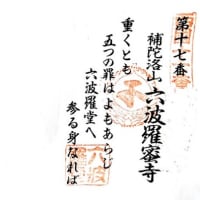 第十七番
補陀洛山六波羅蜜寺
重くとも
五つの罪はよもあらじ
六波羅堂へ
参る身なれば